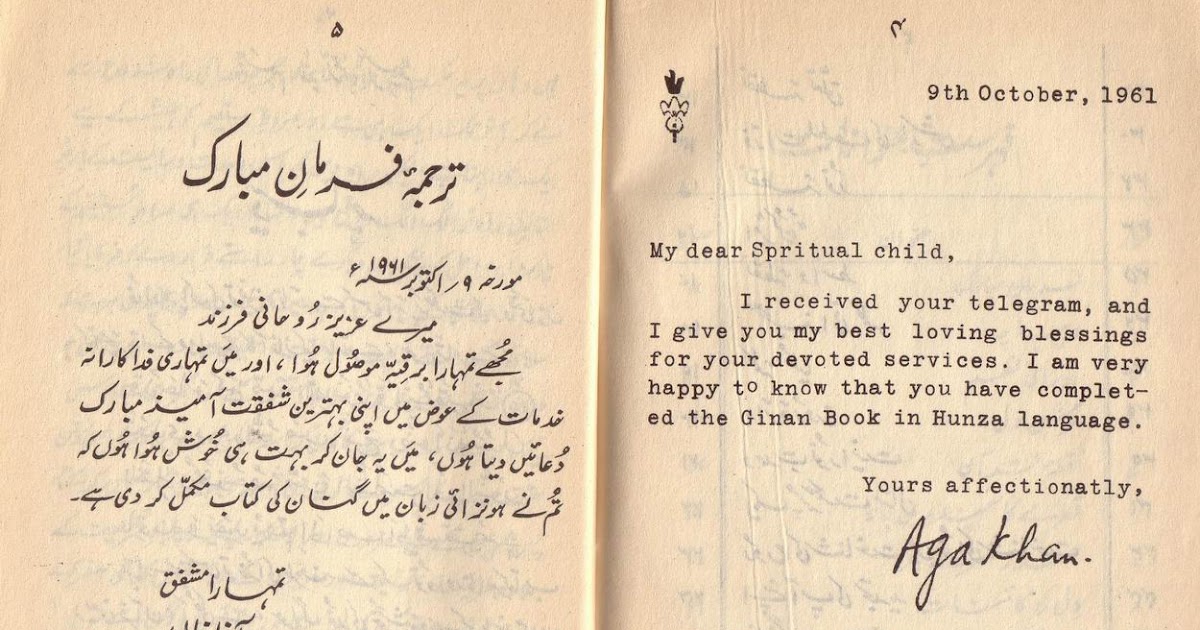 ۵
ترجمۂ فرمانِ مبارک
مورخہ ۹ / اکتوبر سنہ ۱۹۶۱ ء
میرے عزیز رُوحانی فرزند
مُجھے تمہارا برقیّہ موصُول ہُوا، اور مَیں تمہاری فداکارانہ
خدمات کے عوض میں اپنی بہترین شفقت آمیز مبارک
دُعائیں دیتا ہُوں، مَیں یہ جان کر بہت ہی خُوش ہُوا ہُوں کہ
تُم نے ہونزائی زبان میں گنان کی کتاب مکمّل کر دی ہے۔
تمہارا مشفق
۴
9th October, 1961
My dear Spritual child,
I received your telegram, and
I give you my best loving blessings
for your devoted services. I am very
happy to know that you have complet-
ed the Ginan Book in Hunza language.
Yours affectionatly,
Aga Khan.